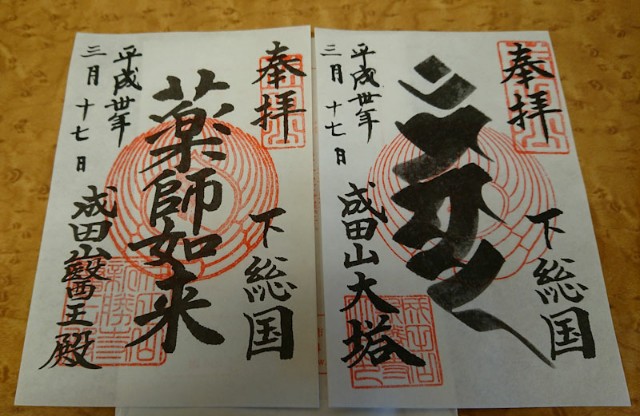 奉拝
下総国
薬師如来
平成卅年
三月十七日
成田山醫王殿
奉拝
下総国
平成卅年
三月十七日
成田山大塔